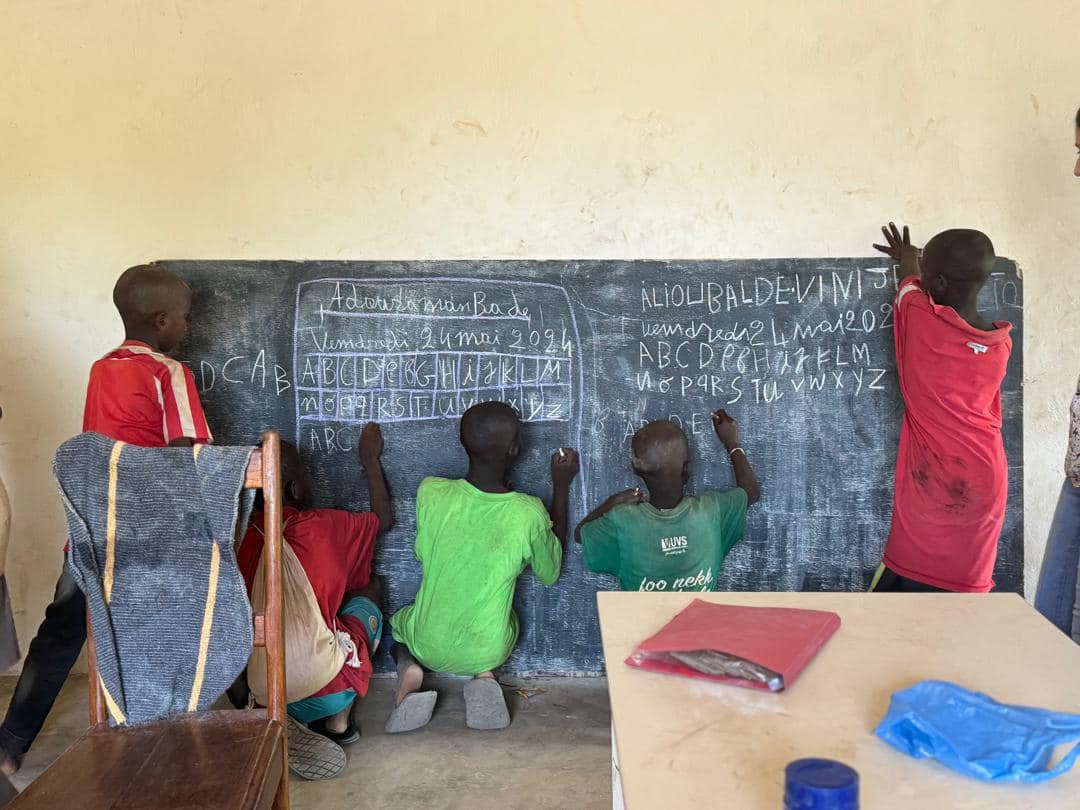 AdouramanBade
Vendradi 24 mai 2024
DCAB
ABCDEFGHijKLM
nopqRSTUVWXYZ
ABC
ALIOUBALDE.VINIJ
vendredi 24 mai 202
ABCDEFHijKLM
nopqRSTUVWXYZ
DE
UVS
foo nekk